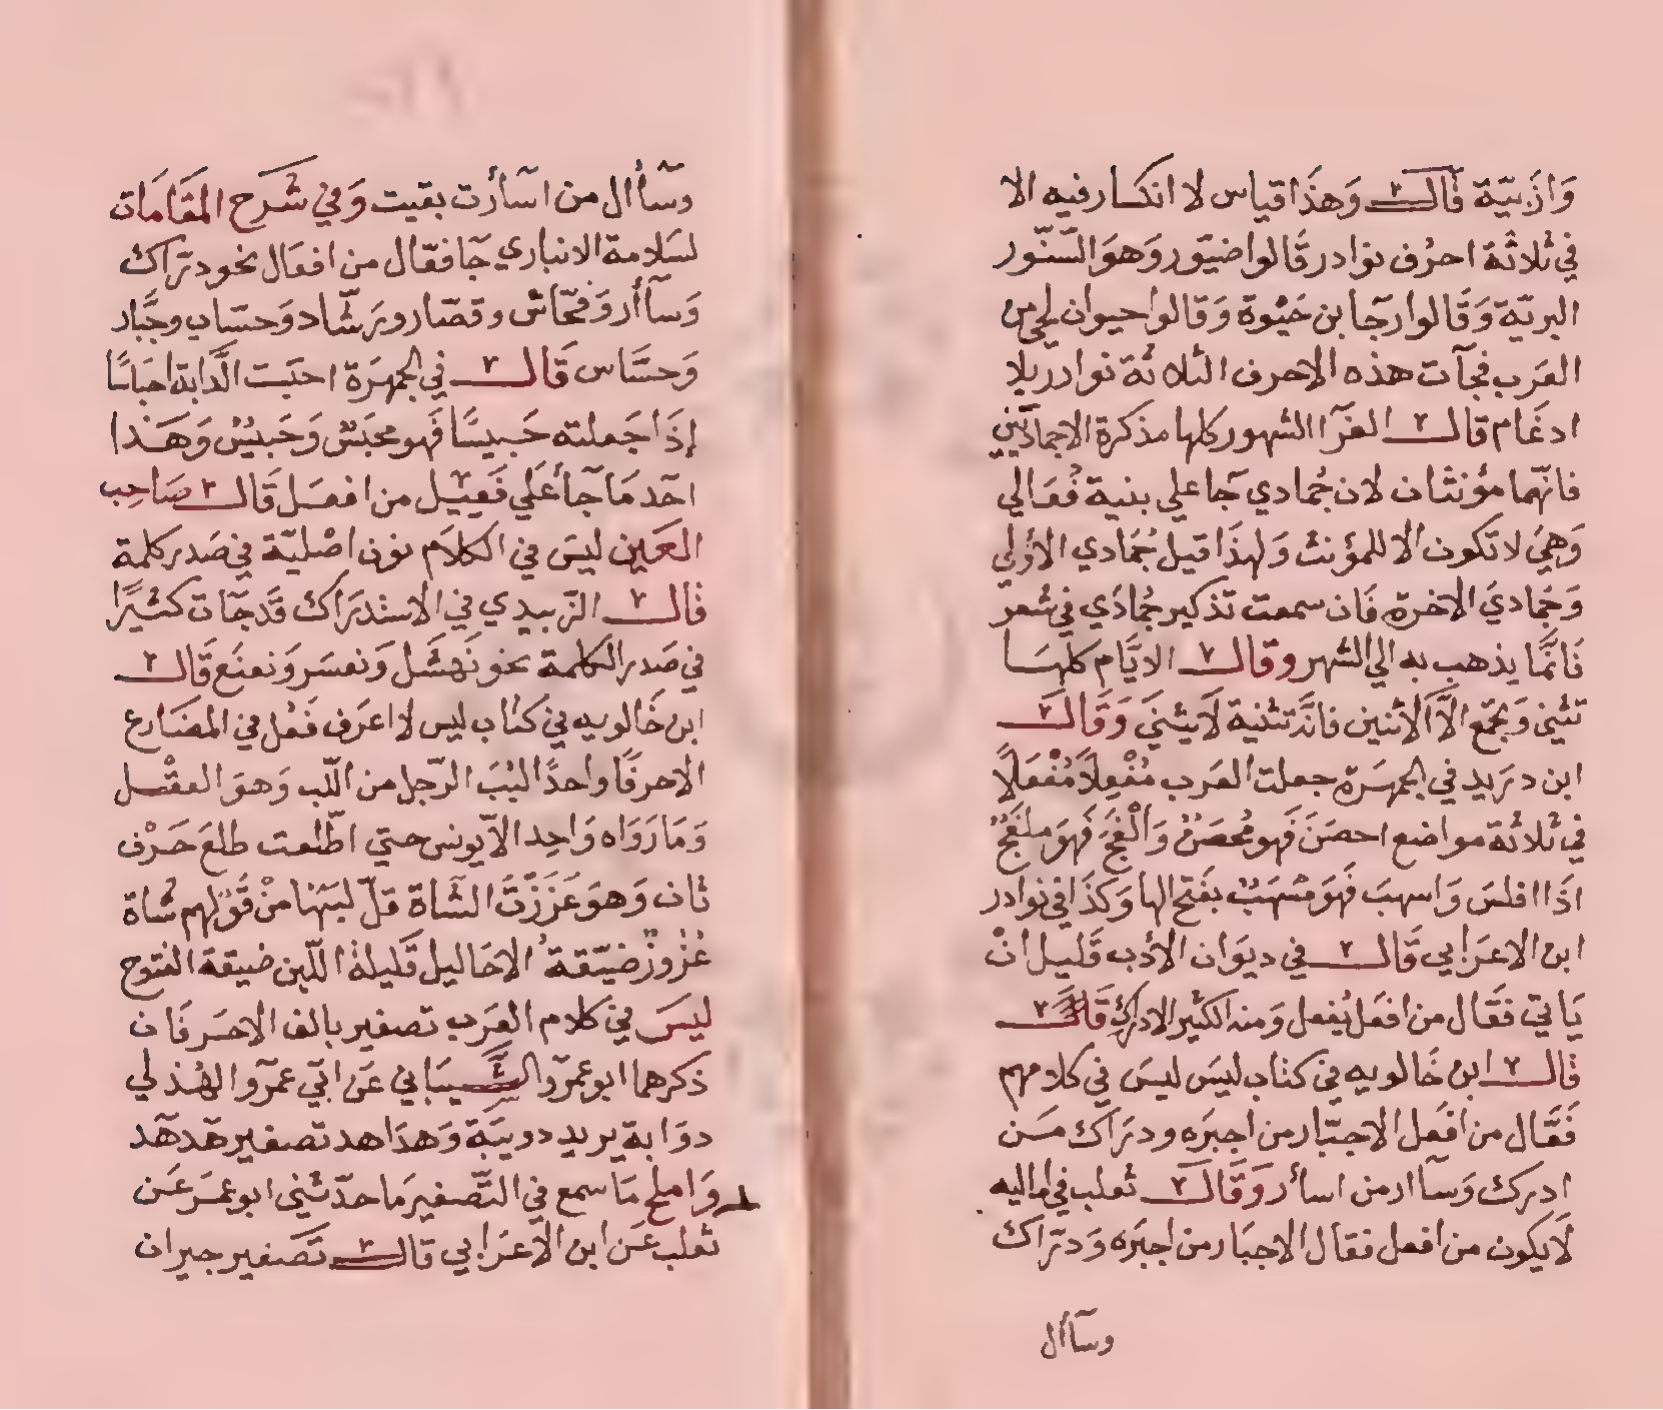 وَازَبيّة قَالَ وَهذَا قياس لا انكسار فيه الا
في ثلاثة احرُف نوادر قَالوا ضيَوَر وَهوَ السّنّور
البريّة وَقَالوا رجَا بن حَيْوة وَقَالوا حيوان لحي من
العَرَب فجآت هذه الاحرف الثلاثة نوادر بلا
ادغَام قال الفرّا الشهور كلها مذكرة الا جماديَين
فانّهما مؤنثان لان جُمادي جَا علي بنية فُعَالي
وَهيَ لا تكون الا للمؤنث وَلهذَا قيل جُمَادي الاَولي
وَجُمادي الاخرة فَان سمعت تذكير جُمادَي في شعر
فَانَّمَا يذهب به الي الشهر وقال الايَّام كلهَا
تثني وَتجمَع الاَّ الاثنين فانَّه تثنية لاَ يثنيَ وَقَالَ
ابن دريد في الجمهَرَة جعلت العَرَب مُفْعِلاً مُفْعَلاً
في ثلاثة مواضع احصَنَ فَهو مُحصَنٌ وَاَلْفَجَ فَهوَ ملفَجٌ
اذَا افلسَ وَاسهبَ فَهَوَ مسْهَبٌ بفتح الها وَكذَا في نوادر
ابن الاعرَابي قَال في ديوَان الاَدب قَليل انْ
يَاتي فَعَّال من افعَل يُفعل وَمنه الكثير الادراك قَالَ
قال ابن خَالويه في كتاب ليسَ ليسَ في كلامهم
فَعَّال من افعَل الا جبّار من اجبَره ودرَاك مَن
ادرك وَسآار من اسأر وَقَالَ ثعلب في اماليه
لاَ يكون من افعل فعَال الا جبَار من اجبَره وَدرّاك
وسآأل
وسّاأل من اسأرت بقيت وَفي شَرح المقَامَات
لسَلامة الانباري جَا فعّال من افعَال نحو درّاك
وَسآأر وَفحّاش وقصّار ورَشّاد وَحسّاب وجبَّار
وَحسَّاس قَال في الجمهَرَة احبَست الدَّابة احبَاسًا
إذَا جَعلته حَبيسًا فَهو محبَسٌ وَحَبيسٌ وَهَذا
احَد مَا جَا علَي فَعيل من افعَل قَال صَاحِب
العَين ليسَ في الكلاَم نون اصْليّة في صَدر كلمة
قال الزّبيدي في الاستدرَاك قَد جَآت كثيرًا
في صَدر الكلمة نحو نَهشَل وَنعسَر وَنعنَع قَال
ابن خَالويه في كتاب ليس لا اعرَف فَعُل في المضَارع
الا حرفًا واحدًا لبُبَ الرّجل من اللّب وَهوَ العقْل
وَمَا رَوَاه وَاحِد الاّ يونس حتي اطّلعت طلعَ حَرْف
ثان وَهوَ عَزَزَتَ الشَاة قلّ لبَنها منْ قَوْلهم شاة
عُزوز ضيّقة الاحَاليل قَليلة اللبن ضيقة الفتوح
ليسَ في كلام العَرب تصغير بالف الا حَرفَان
ذكرهما ابو عمرّو الشَّيبَاني عَن ابي عمرو الهُذلي
دوَابة يريد دويبّة وَهدَاهد تصغير هَدهَد
وَاملح مَا سمع في التّصغير مَا حدّثني ابو عمَر عَن
ثعلب عَن ابن الاَعرَابي قال تَصَغير جيران